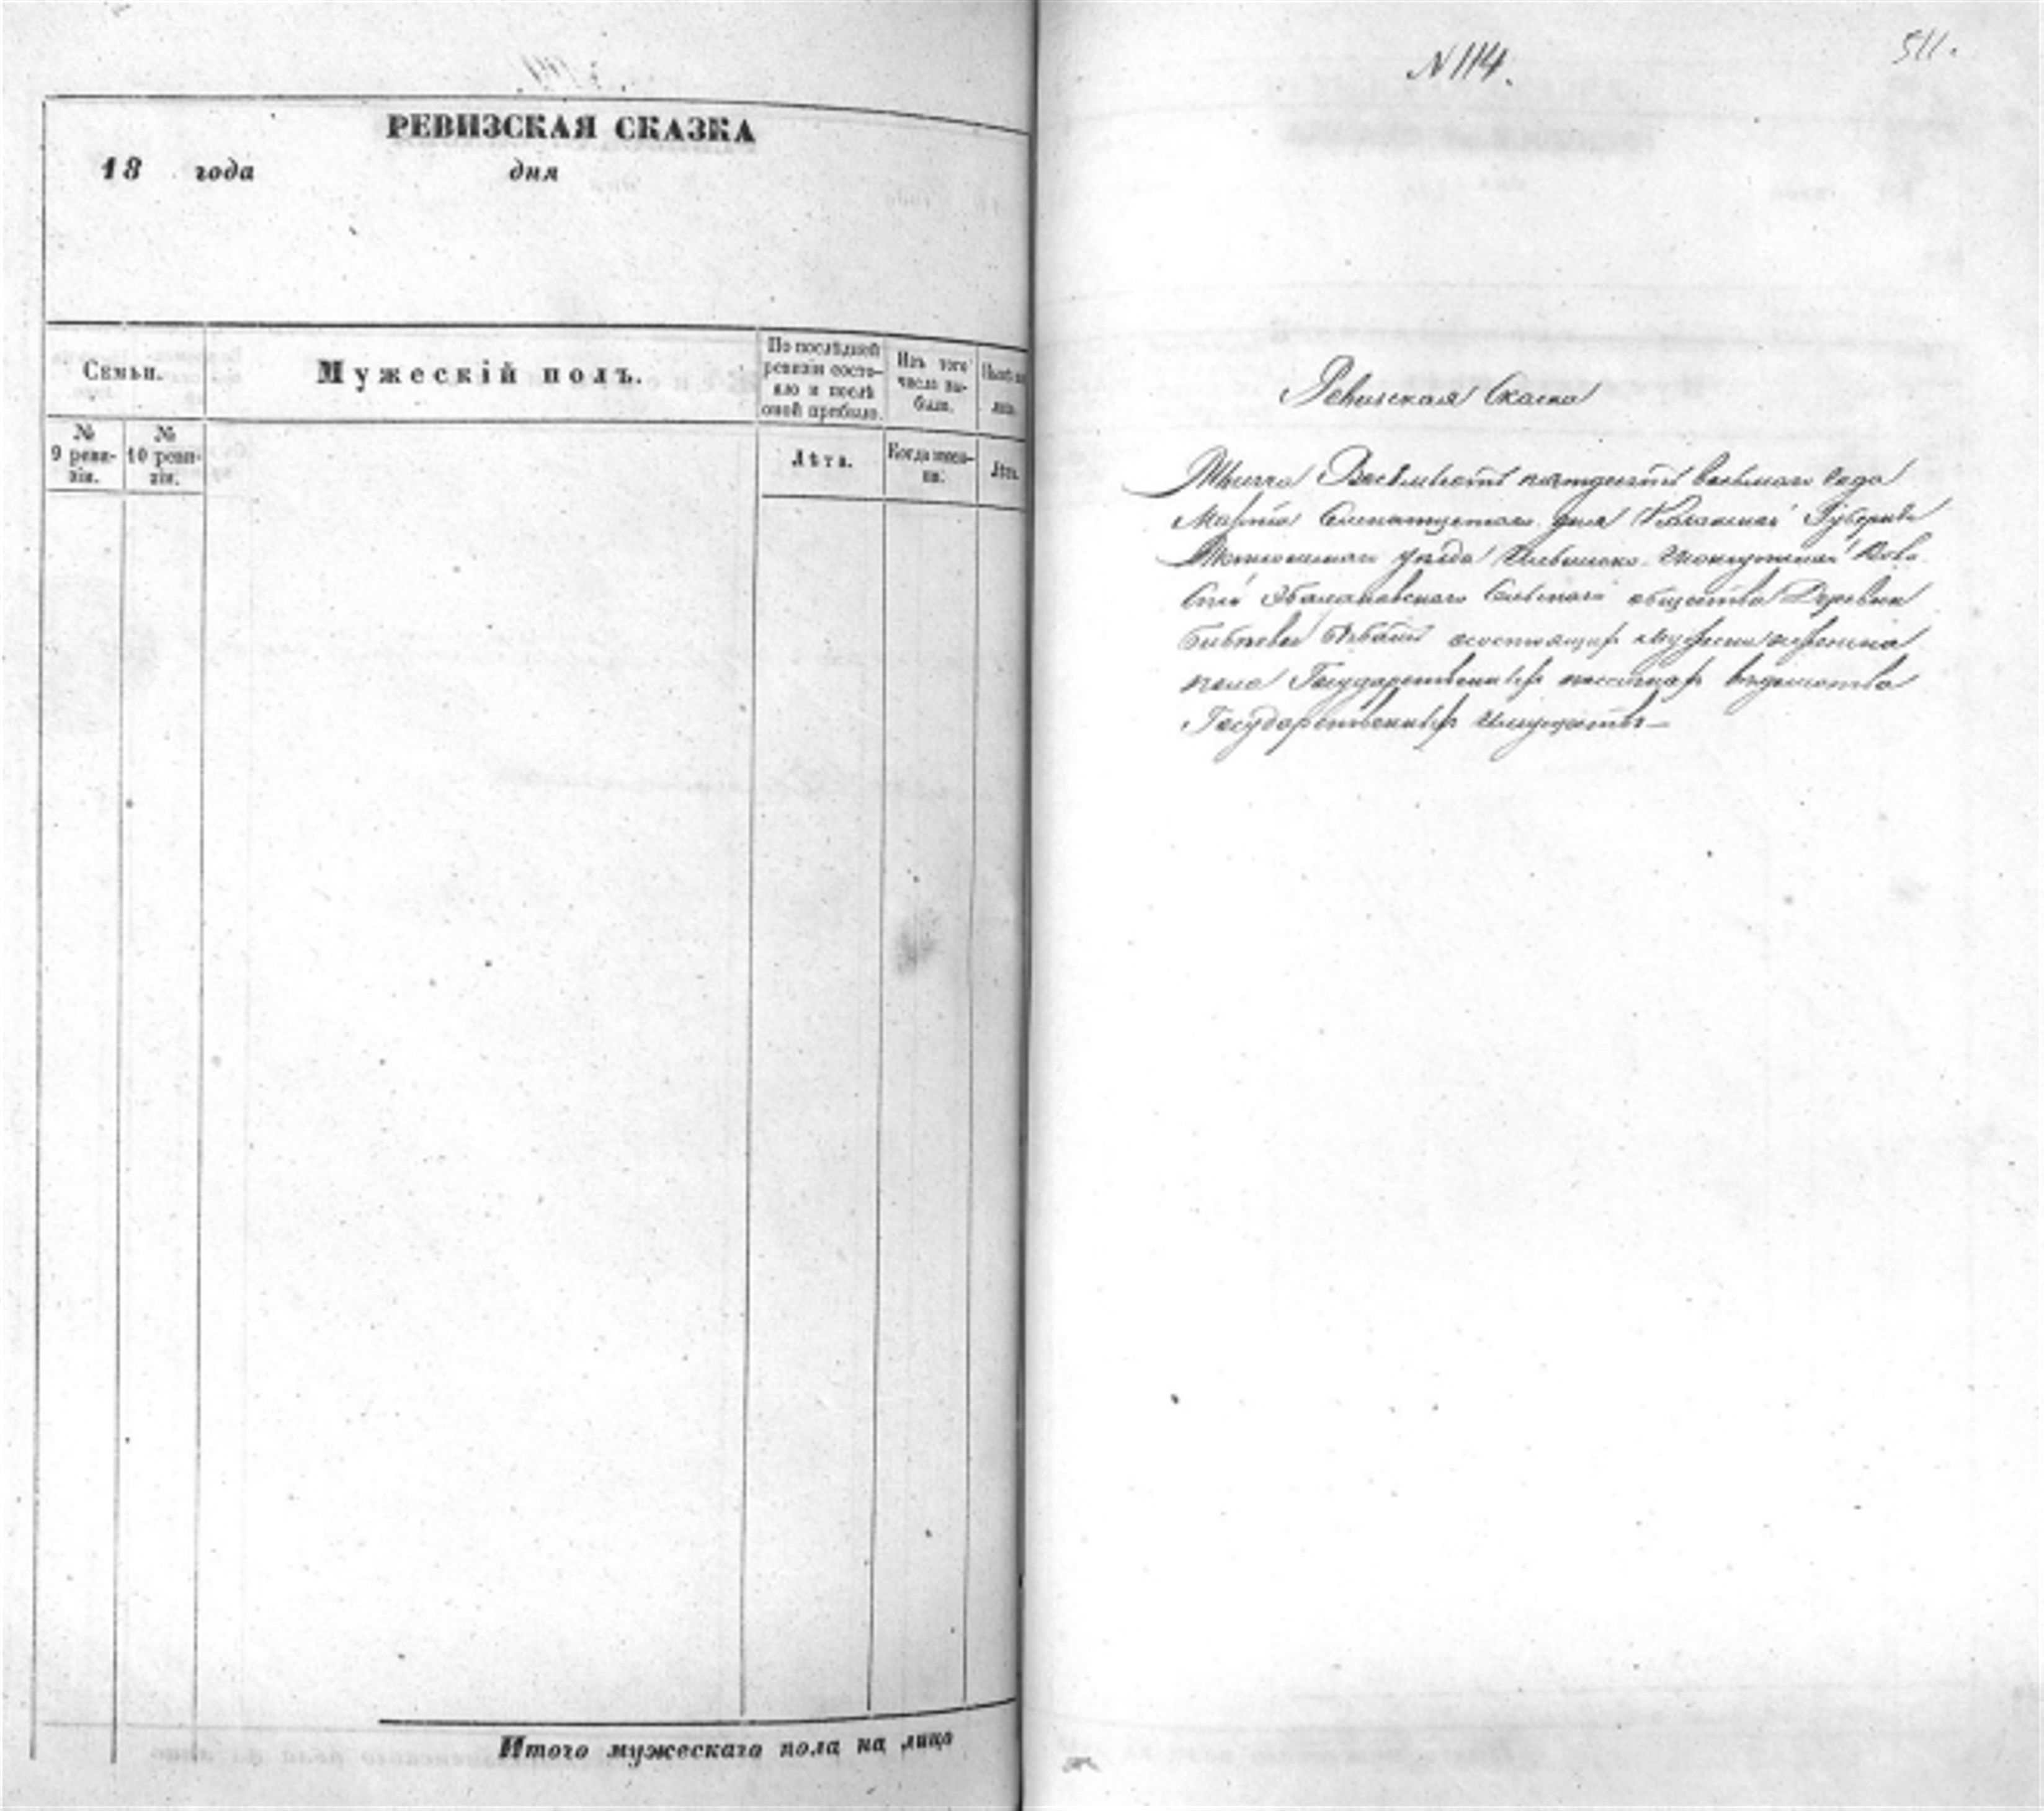 РЕВИЗСКАЯ СКАЗКА
18 года дня
Семьи.
Мужескій полъ.
По послѣдней
ревизіи состо-
яло и послѣ
оной прибыло.
Изъ того
числа вы-
было.
№
9 реви-
зіи.
№
10 реви-
зіи.
Лѣта.
Лѣта.
Итого мужескаго пола на лицо
№ 114.
511.
Ревизская Сказка
Тысяча Восемьсотъ пятьдесятъ восьмаго года
Марта дня Казанской Губерніи
уѣзда
Сельскаго общества Деревни
состоящихъ мужеска и женска
пола Государственныхъ вѣдомства
Государственныхъ Имуществъ